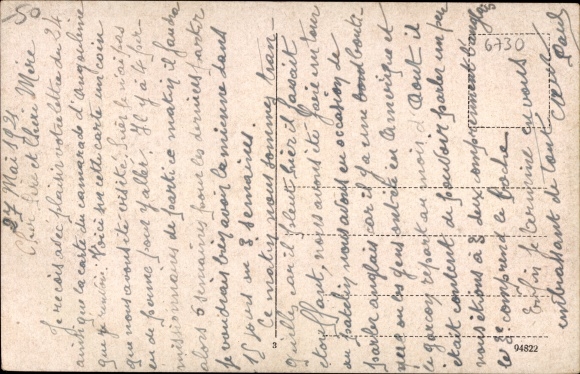 27 Mai 192
Cher Père et Chère Mère
Je reçois avec plaisir votre lettre du 24
ainsi que la carte du camarade d'Angoulème
que je rendrai. Voici sur cette carte un coin
que nous avons été visité, hier je n'ai pas
eu de permé pour y aller. Il y a le
missionnaires de parti ce matin il faudra
alors 6 semaines pour les derniers, partir
je voudrais bien avoir la mienne dans
15 jours ou 3 semaines.
Ce matin nous sommes tran-
quilles, car il pleut hier il faisait
étouffant, nous avons été faire un tour
au patelin nous avons eu occasion de
parler anglais car il y a une bouti-
que ou ces gens ont été en Amérique et
le garçon repart au mois d'Août il
était content de pouvoir parler un peu
nous étions à 3 deux comprennent l'anglais
le 3e comprend le boche.
Enfin je termine en vous
embrassant de tout cœur
Paul
6730
3
94822